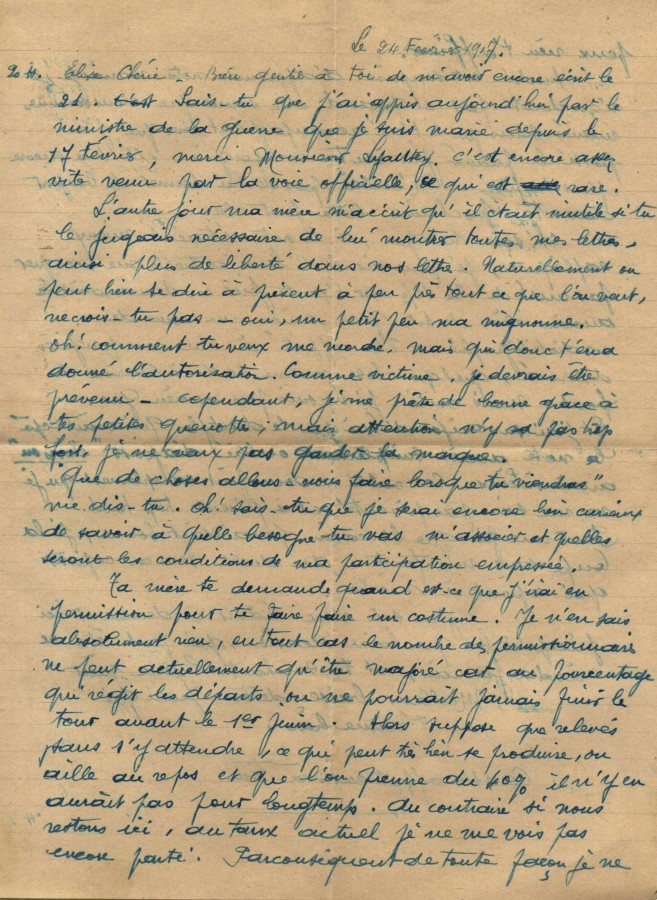 Le 24 Février 1917.
20 H. Elise Chérie - Bien gentil à toi de m'avoir encore écrit le
21. C'est Sais-tu que j'ai appris aujourd'hui par le
ministre de la guerre que je suis marié depuis le
17 février, merci Monsieur Lyautey. C'est encore assez
vite venu par la voie officielle, ce qui est rare.
L'autre jour ma mère m'a écrit qu'il était inutile si tu
le jugeais nécessaire de lui montrer toutes mes lettres,
ainsi plus de liberté dans nos lettre. Naturellement on
peut bien se dire à présent à peu près tout ce que l'on veut,
ne crois-tu pas - oui, un petit peu ma mignonne.
Oh! comment tu veux me mordre, mais qui donc t'en a
donné l'autorisation. Comme victime, je devrais être
prévenu - cependant, je me prête de bonne grâce à
tes petites quenottes, mais attention n'y va pas trop
fort, je ne veux pas garder la marque.
"Que de choses allons-nous faire lorsque tu viendras"
me dis-tu. Oh! sais-tu que je serai encore bien curieux
de savoir à quelle besogne tu vas m'associer et quelles
seront les conditions de ma participation empressée.
Ta mère te demande quand est-ce que j'irai en
permission pour te faire faire un costume. Je n'en sais
absolument rien, en tout cas le nombre des permissionnaires
ne peut actuellement qu'être majoré car au pourcentage
qui régit les départs on ne pourrait jamais finir le
tour avant le 1er Juin. Alors suppose que relevés
sans s'y attendre, ce qui peut très bien se produire, on
aille au repos et que l'on prenne du 40% il n'y en
aurait pas pour longtemps. Au contraire si nous
restons ici, au taux actuel je ne me vois pas
encore parti. Parconséquent de toute façon je ne